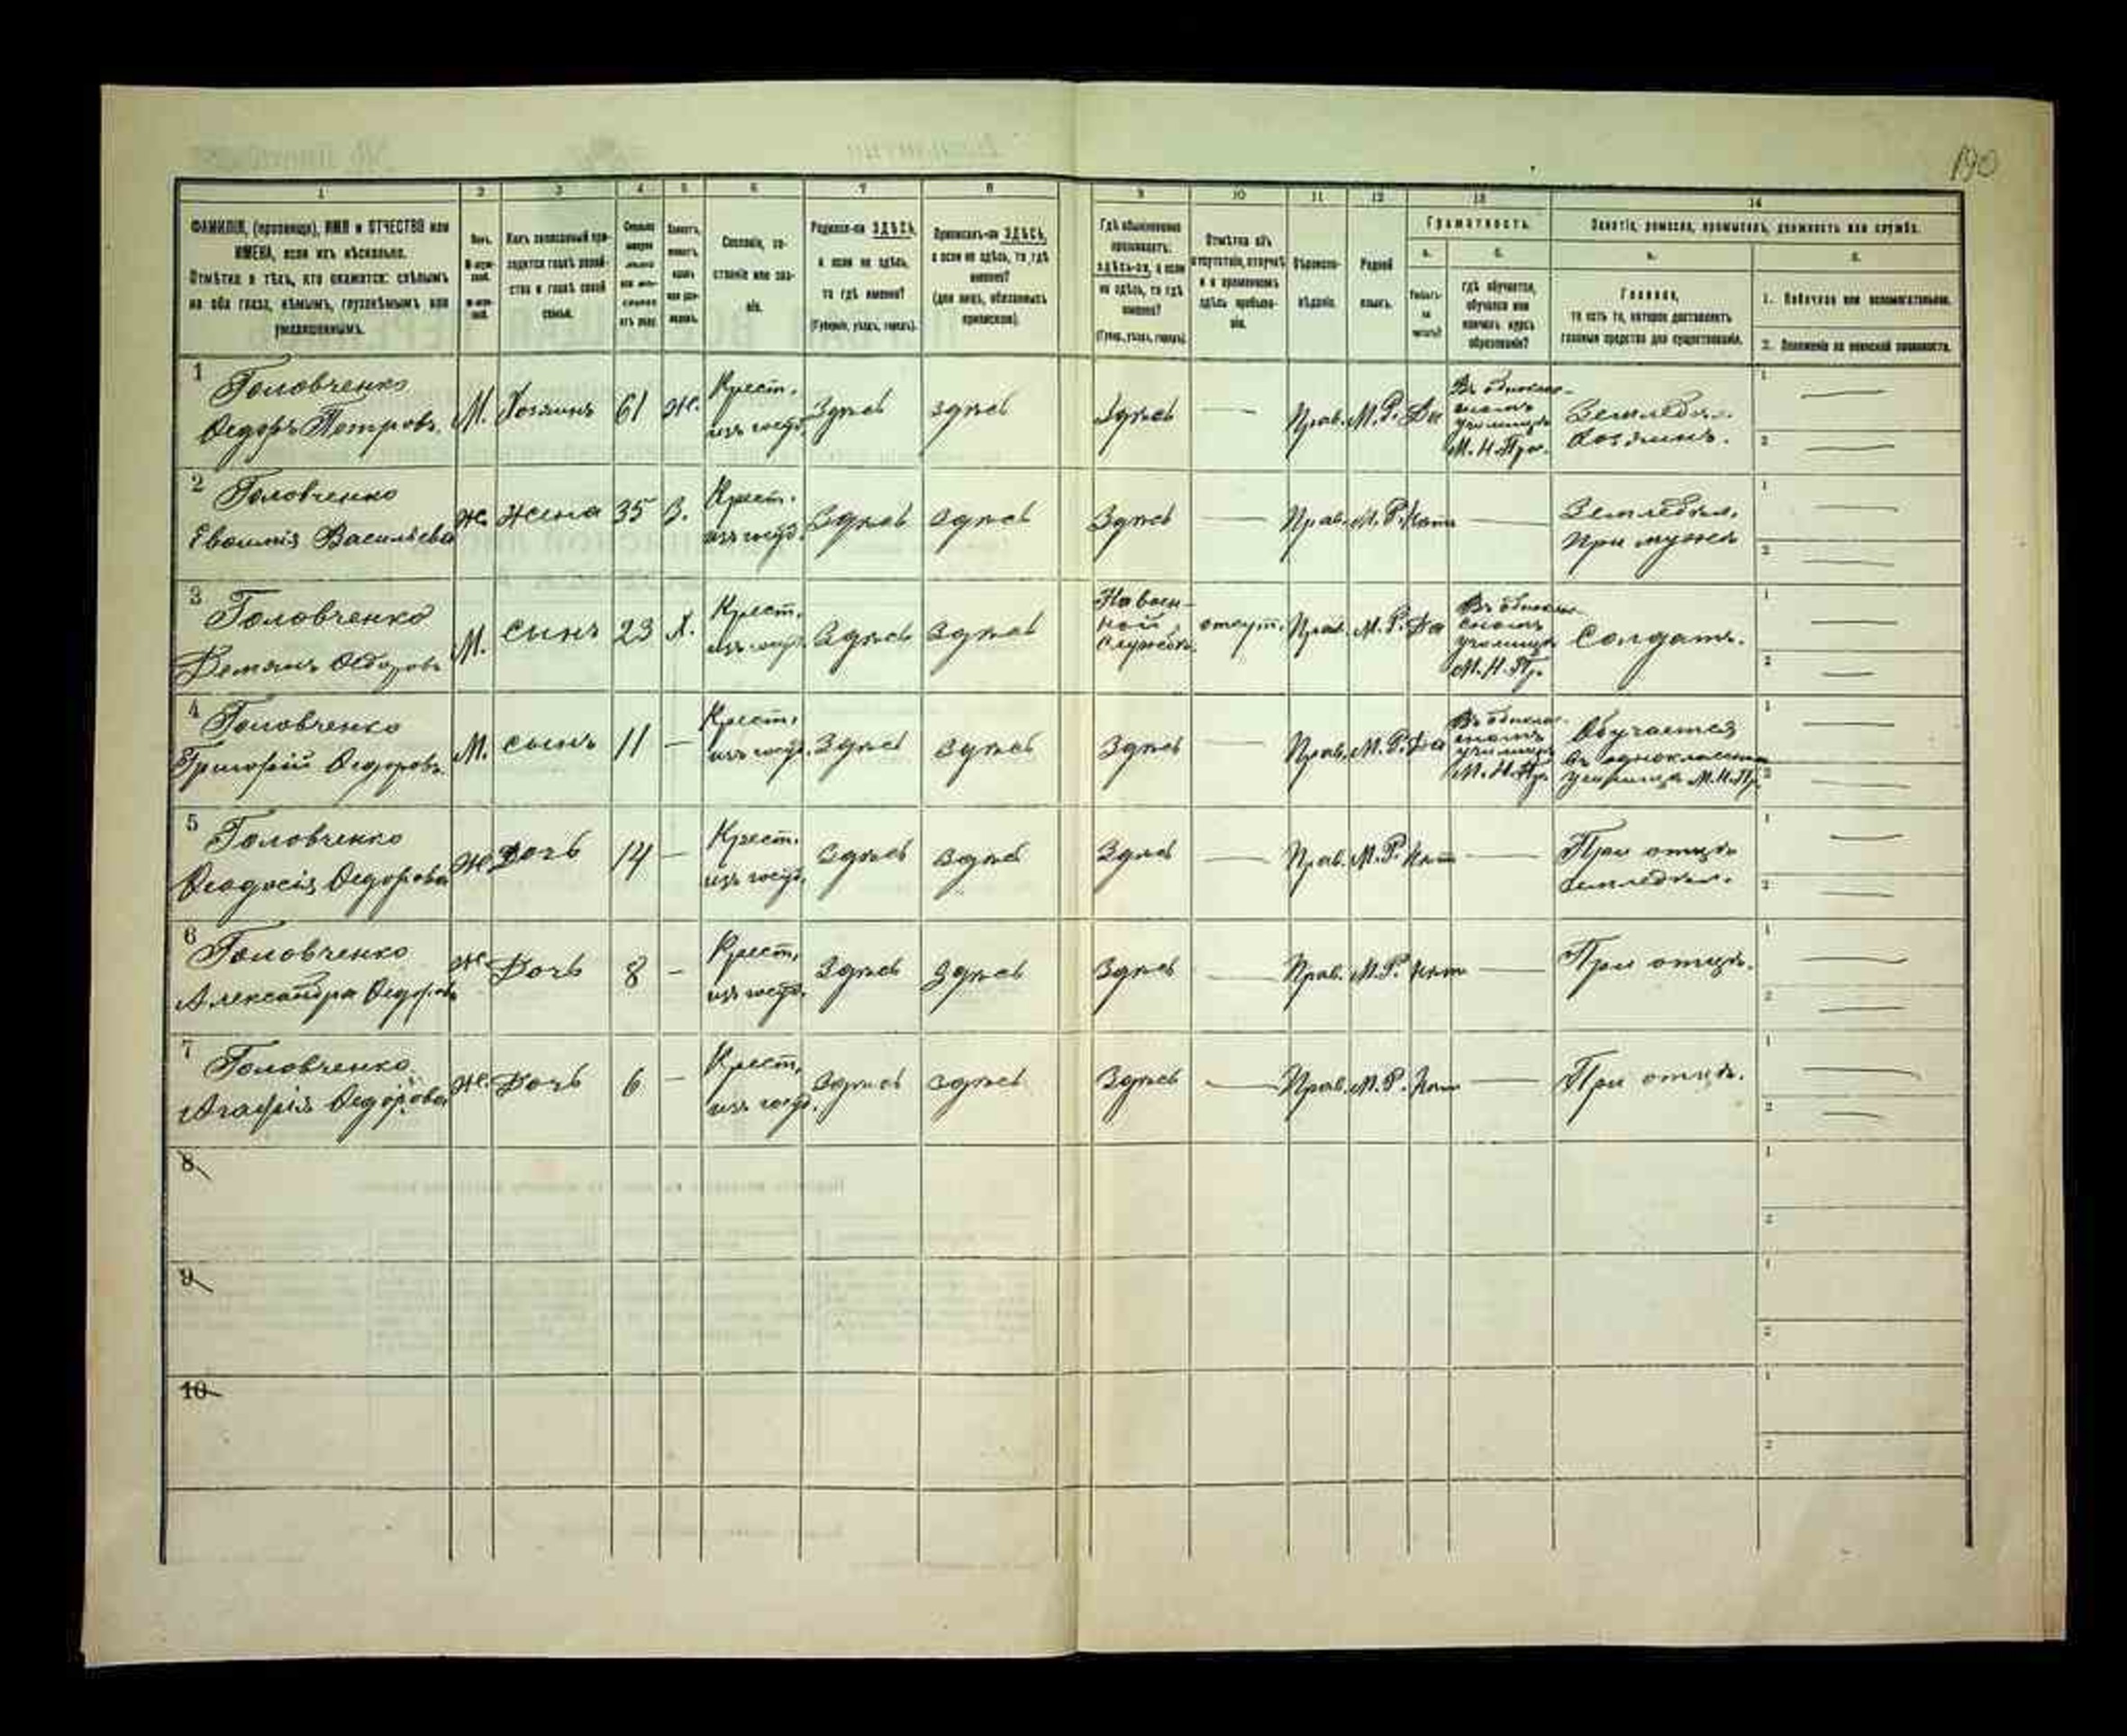 190
1 2 3 4 5 6 7 8 9 10 11 12 13 14
ФАМИЛІЯ, (прозвище), ИМЯ и ОТЧЕСТВО или
ИМЕНА, если ихъ нѣсколько.
Отмѣтка о тѣхъ, кто окажется: слѣпымъ
на оба глаза, нѣмымъ, глухонѣмымъ или
умалишеннымъ.
Полъ.
Какъ записанный при-
ходится главѣ хозяй-
ства и главѣ своей
семьи.
Сословіе, со-
стояніе или зва-
ніе.
Родился-ли ЗДѢСЬ,
а если не здѣсь,
то гдѣ именно?
(Губернія, уѣздъ, городъ).
Приписанъ-ли ЗДѢСЬ,
а если не здѣсь, то гдѣ
именно?
(для лицъ, обязанныхъ
припискою).
Гдѣ обыкновенно
проживаетъ:
здѣсь-ли, а если
не здѣсь, то гдѣ
именно?
(Губер., уѣздъ, городъ).
Отмѣтка объ
отсутствіи, отлучкѣ
и о временномъ
здѣсь пребыва-
ніи.
Вѣроиспо-
вѣданіе.
Родной
языкъ.
Грамотность.
а. б.
Умѣетъ-
ли
читать?
гдѣ обучается,
обучался или
кончилъ курсъ
образованія?
Занятіе, ремесло, промыселъ, должность или служба.
а. б.
Главное,
то есть то, которое доставляетъ
главныя средства для существованія.
1. Побочное или вспомогательное.
2. Положеніе по воинской повинности.
1 Головченко
Ѳедоръ Петровъ. М. Хозяинъ 61 Ж. Крест. изъ госуд. Здѣсь здѣсь Здѣсь — Прав. М. Р. Да Въ однокласномъ училищѣ М. Н. Пр. Земледѣл. Хозяинъ. 1 — 2 —
2 Головченко
Евѳимія Васильева Ж. Жена 35 З. Крест. изъ госуд. Здѣсь Здѣсь Здѣсь — Прав. М. Р. Нѣтъ — Земледѣл. При мужѣ 1 — 2 —
3 Головченко
Демянъ Ѳедоровъ М. Сынъ 23 Х. Крест. изъ госуд. Здѣсь Здѣсь На воен-ной службѣ отсут. Прав. М. Р. Да Въ однокласномъ училищѣ М. Н. Пр. Солдатъ. 1 — 2 —
4 Головченко
Григорій Ѳедоровъ М. Сынъ 11 — Крест. изъ госуд. Здѣсь Здѣсь Здѣсь — Прав. М. Р. Да Въ однокласномъ училищѣ М. Н. Пр. Обучается въ одноклассномъ училищѣ М. Н. Пр. 1 — 2 —
5 Головченко
Ѳеодосія Ѳедорова Ж. Дочь 14 — Крест. изъ госуд. Здѣсь Здѣсь Здѣсь — Прав. М. Р. Нѣтъ — При отцѣ земледѣл. 1 — 2 —
6 Головченко
Александра Ѳедорова Ж. Дочь 8 — Крест. изъ госуд. Здѣсь Здѣсь Здѣсь — Прав. М. Р. Нѣтъ — При отцѣ. 1 — 2 —
7 Головченко
Агафія Ѳедорова Ж. Дочь 6 — Крест. изъ госуд. Здѣсь Здѣсь Здѣсь — Прав. М. Р. Нѣтъ — При отцѣ. 1 — 2 —
8 1 2
9 1 2
10 1 2